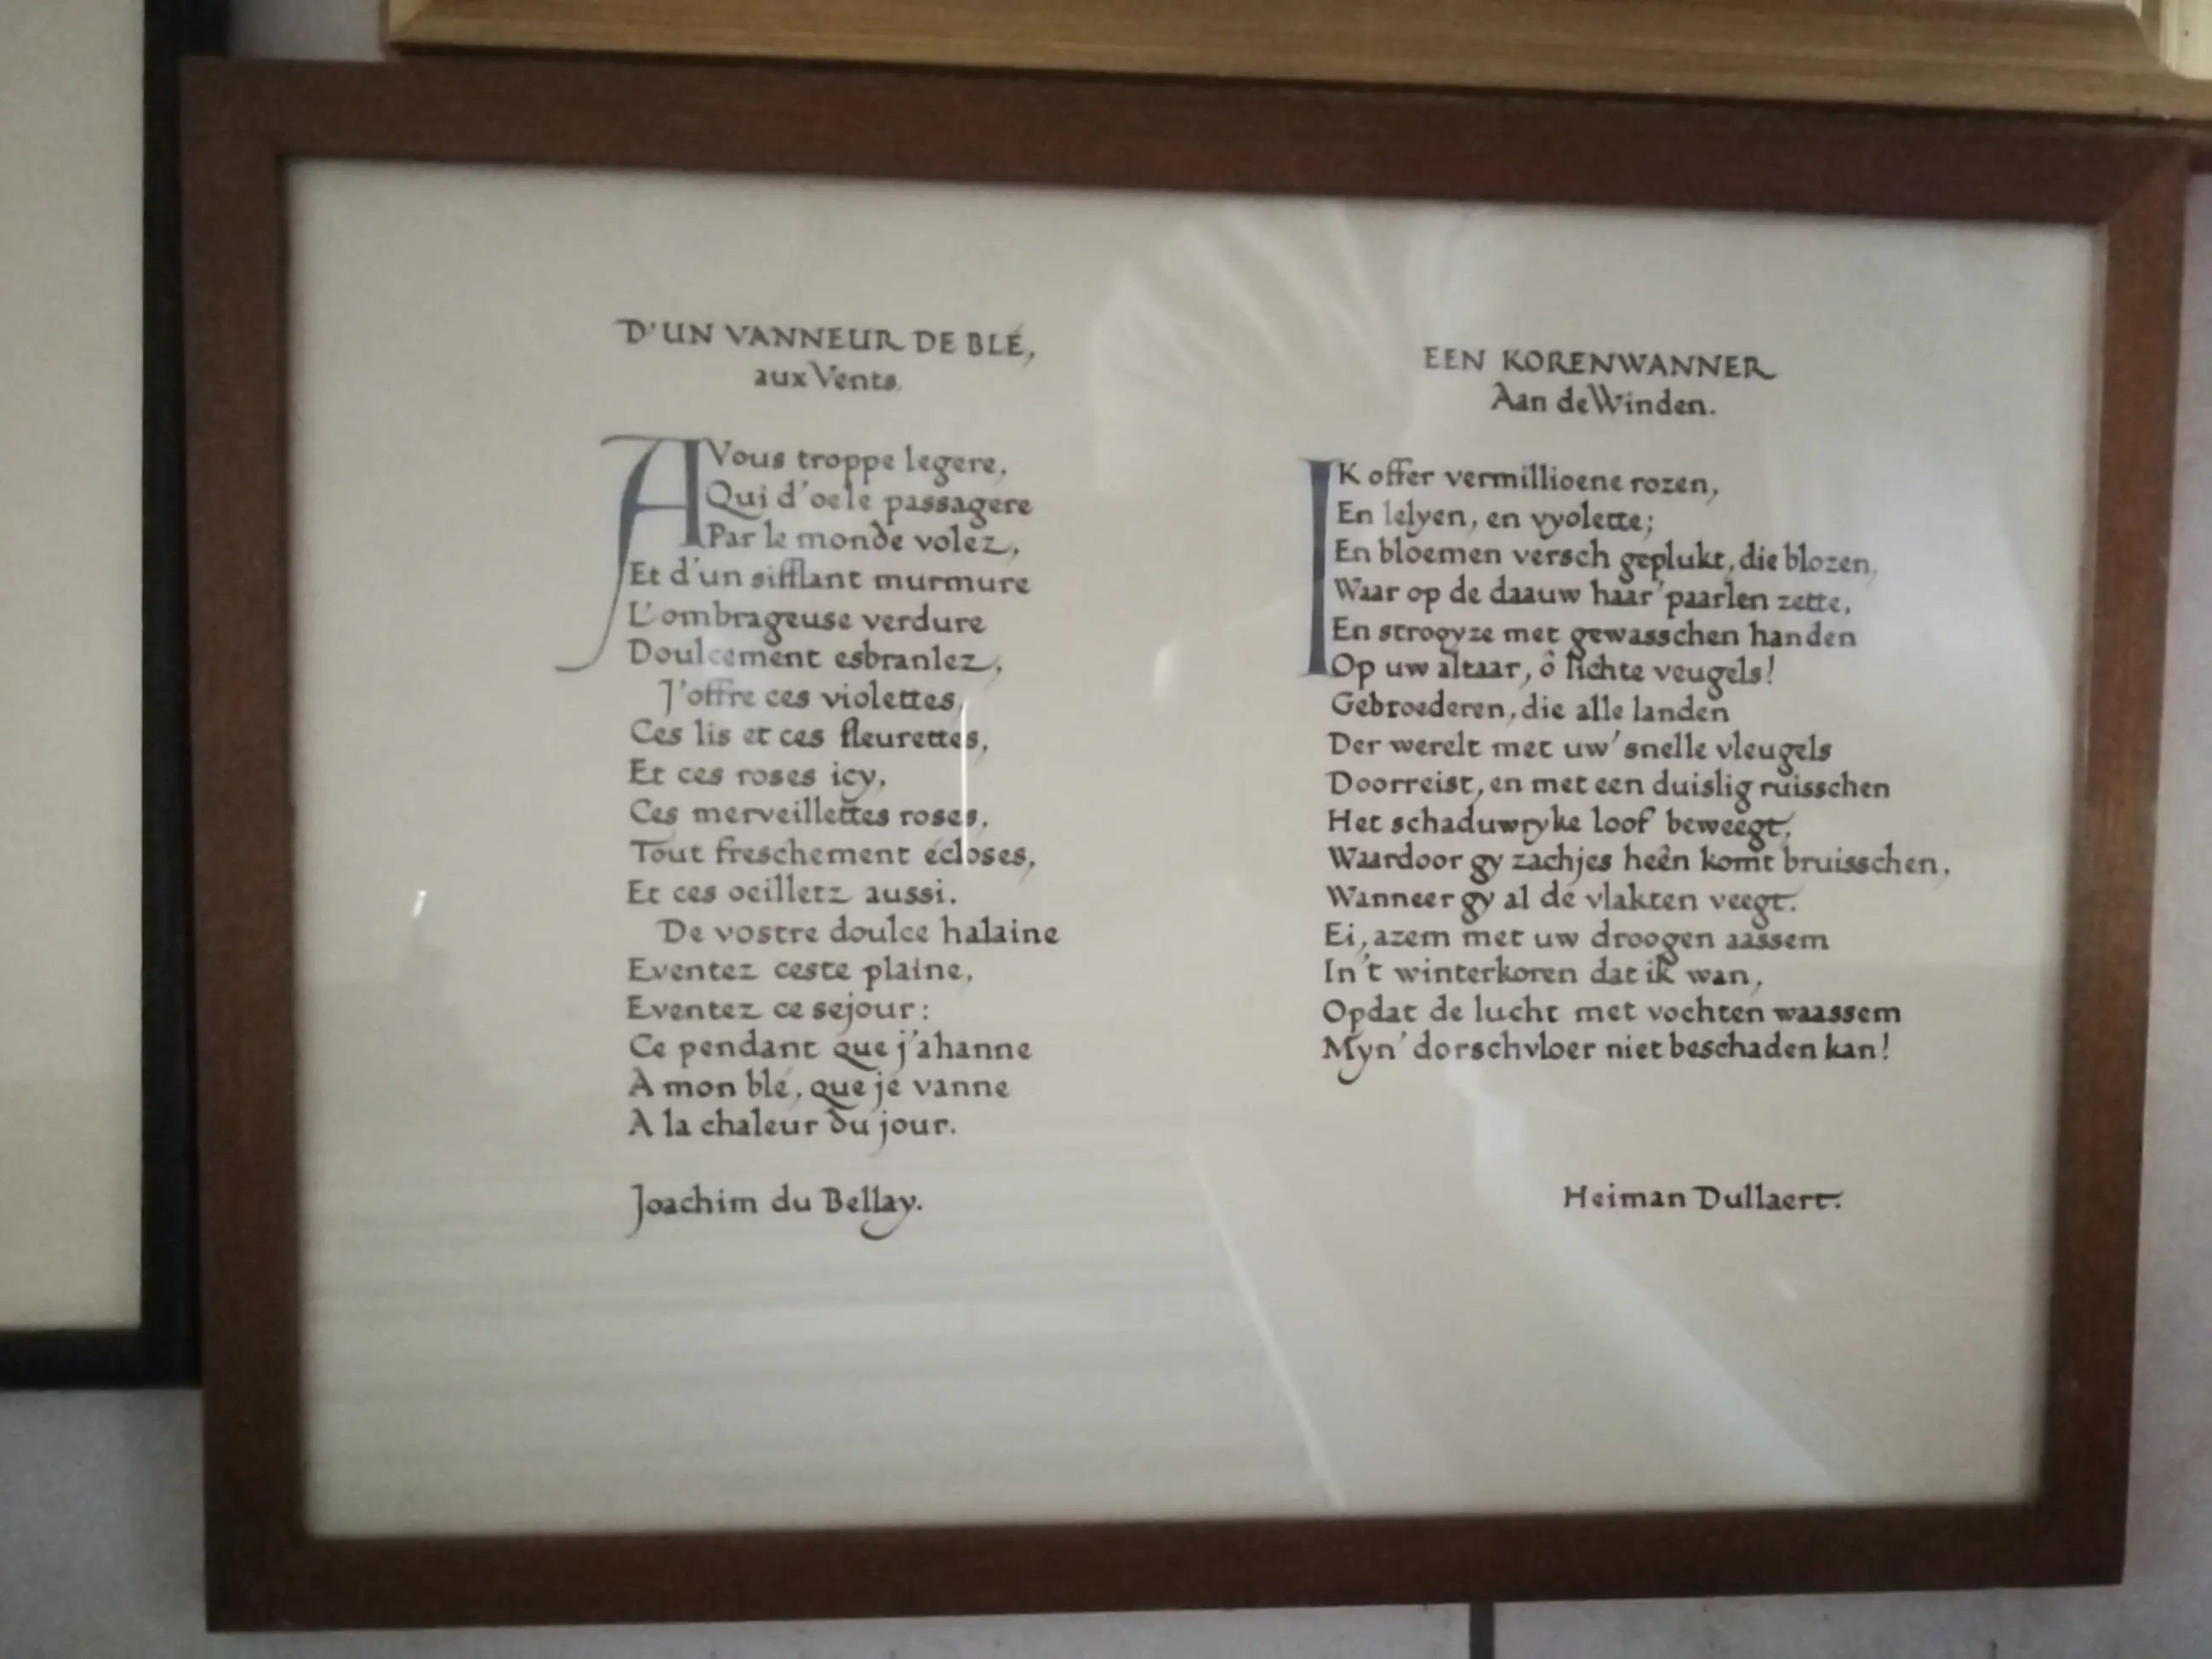 D'UN VANNEUR DE BLÉ,
aux Vents.
A Vous troppe legere,
Qui d'oele passagere
Par le monde volez,
Et d'un sifflant murmure
L'ombrageuse verdure
Doulcement esbranlez,
J'offre ces violettes,
Ces lis et ces fleurettes,
Et ces roses icy,
Ces merveillettes roses,
Tout freschement écloses,
Et ces oeilletz aussi.
De vostre doulce halaine
Eventez ceste plaine,
Eventez ce sejour:
Ce pendant que j'ahanne
A mon blé, que je vanne
A la chaleur du jour.
Joachim du Bellay.
EEN KORENWANNER
Aan de Winden.
IK offer vermillioene rozen,
En lelyen, en vyolette;
En bloemen versch geplukt, die blozen,
Waar op de daauw haar' paarlen zette,
En strooyze met gewasschen handen
Op uw altaar, ô lichte veugels!
Gebroederen, die alle landen
Der werelt met uw' snelle vleugels
Doorreist, en met een duislig ruisschen
Het schaduwryke loof beweegt,
Waardoor gy zachjes heên komt bruisschen,
Wanneer gy al de vlakten veegt.
Ei, azem met uw droogen aassem
In't winterkoren dat ik wan,
Opdat de lucht met vochten waassem
Myn' dorschvloer niet beschaden kan!
Heiman Dullaert.